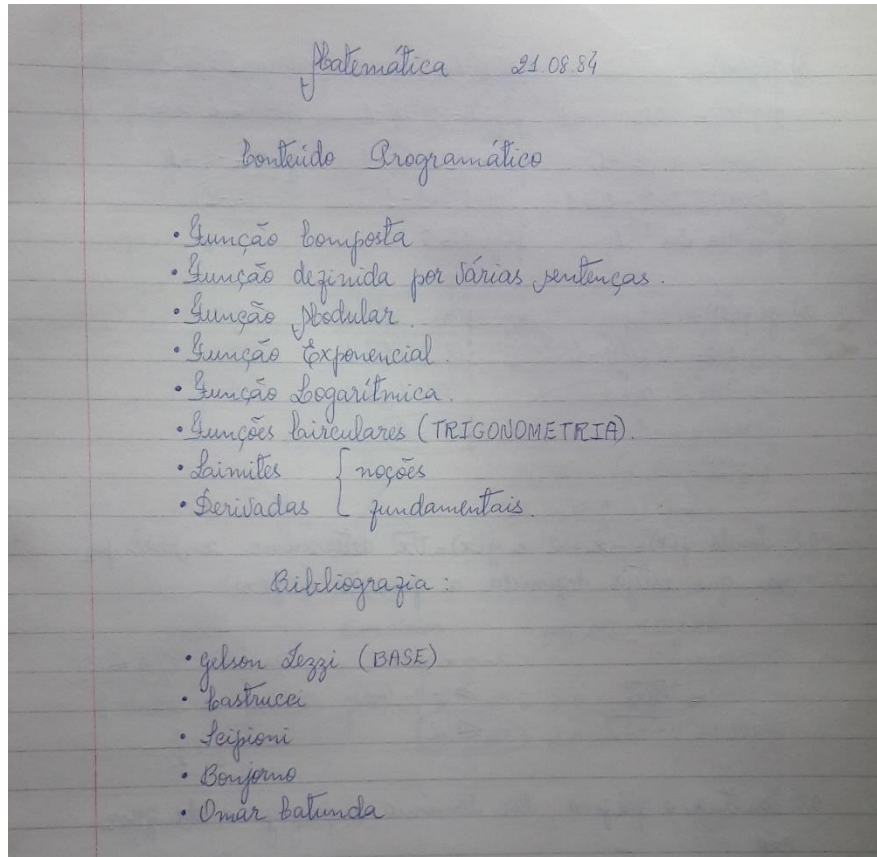 Matemática 21.08.84
Conteúdo Programático
• Função Composta
• Função definida por várias sentenças.
• Função Modular.
• Função Exponencial.
• Função Logarítmica.
• Funções Circulares (TRIGONOMETRIA).
• Limites { noções
• Derivadas fundamentais.
Bibliografia:
• Gelson Iezzi (BASE)
• Castrucci
• Scipioni
• Bonjorno
• Omar Catunda